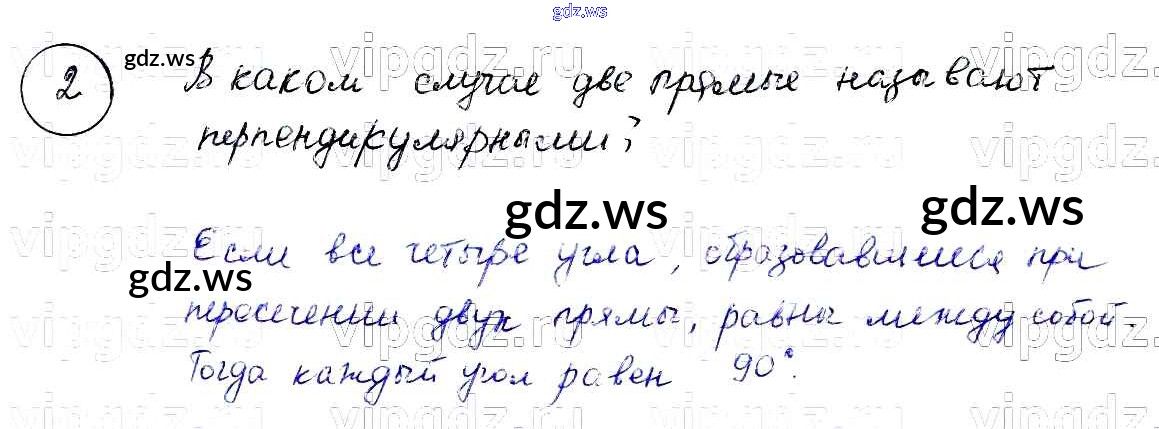 gdz.ws
gdz.ws
2 В каком случае две прямые называют
перпендикулярными?
gdz.ws gdz.ws
Если все четыре угла, образовавшиеся при
gdz.ws
пересечении двух прямы, равны между собой.
Тогда каждый угол равен 90°.
vipgdz